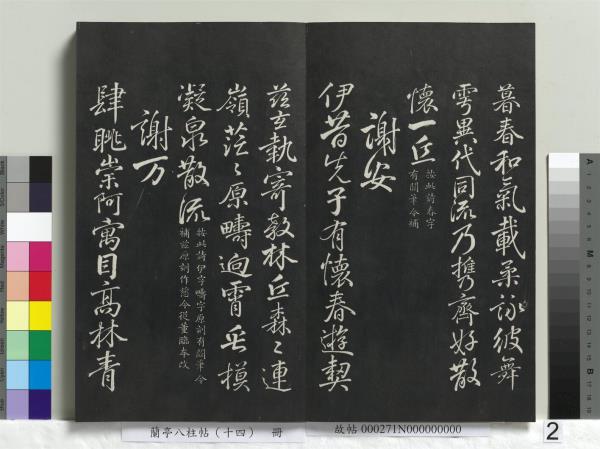 暮春和氣載柔詠彼舞
雩異代同流乃攜齊好散
懷一丘
按此詩春字
有闕筆今補
謝安
伊昔先子有懷春遊契
茲言執寄敖林丘森〻連
嶺茫〻原疇迥霄垂模
凝泉散流
按此詩伊字疇字原刻有闕筆今
補茲原刻作慈今從董臨本改
謝万
肆眺崇阿寓目高林青
蘭亭八柱帖(十四) 冊
故帖 000271N000000000
2
A
M
B